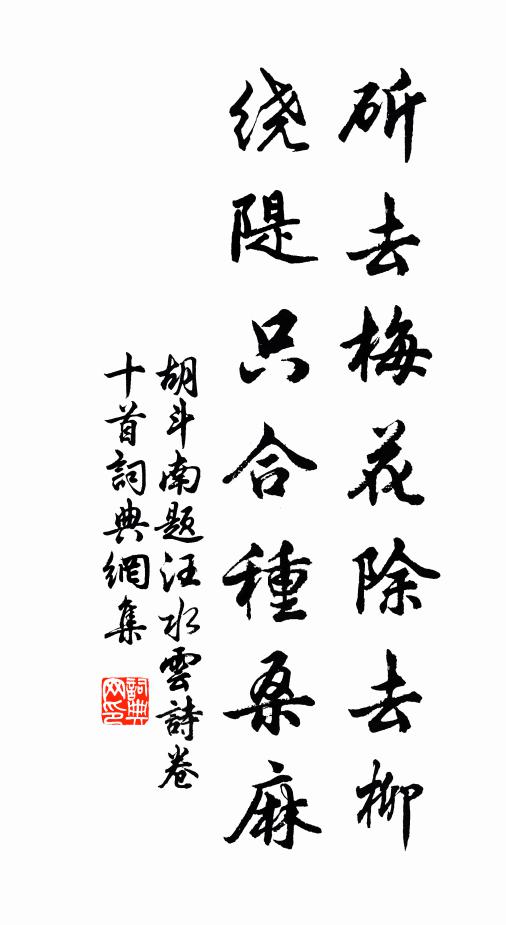 斫去梅花除去柳
绕隄只合種桑麻
胡斗南题汪水雲詩卷
十首詞典網集
詞典
网印